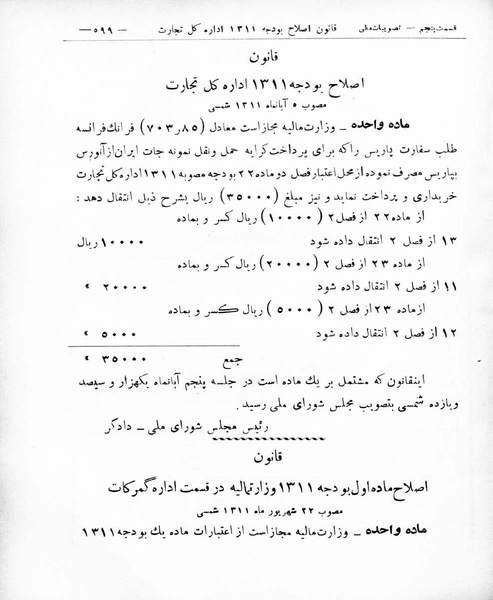 قسمت پنجم — تصویبات ملی قانون اصلاح بودجه ۱۳۱۱ اداره کل تجارت —۵۹۹—
قانون
اصلاح بودجه ۱۳۱۱ اداره کل تجارت
مصوب ۵ آبانماه ۱۳۱۱ شمسی
ماده واحده – وزارت مالیه مجاز است معادل (۷۰۳٫۸۵) فرانك فرانسه
طلب سفارت پاریس را که برای پرداخت کرایه حمل ونقل نمونه جات ایران از آنورس
بپاریس مصرف نموده از محل اعتبار فصل دو ماده ۲۲ بودجه مصوبه ۱۳۱۱ اداره کل تجارت
خریداری و پرداخت نماید و نیز مبلغ (۳۵۰۰۰) ریال بشرح ذیل انتقال دهد :
از ماده ۲۲ از فصل ۲ (۱۰۰۰۰) ریال کسر و بماده
۱۳ از فصل ۲ انتقال داده شود ۱۰۰۰۰ ریال
از ماده ۲۳ از فصل ۲ (۲۰۰۰۰) ریال کسر و بماده
۱۱ از فصل ۲ انتقال داده شود ۲۰۰۰۰ »
ازماده ۲۳ از فصل ۲ (۵۰۰۰) ریال کسر و بماده
۱۲ از فصل ۲ انتقال داده شود ۵۰۰۰ »
جمع ۳۵۰۰۰ »
اینقانون که مشتمل بر یك ماده است در جلسه پنجم آبانماه یکهزار و سیصد
ویازده شمسی بتصویب مجلس شورای ملی رسید .
رئیس مجلس شورای ملی – دادگر
قانون
اصلاح ماده اول بودجه ۱۳۱۱ وزارتمالیه در قسمت اداره گمرکات
مصوب ۲۲ شهریور ماه ۱۳۱۱ شمسی
ماده واحده – وزارت مالیه مجاز است از اعتبارات ماده یك بودجه ۱۳۱۱